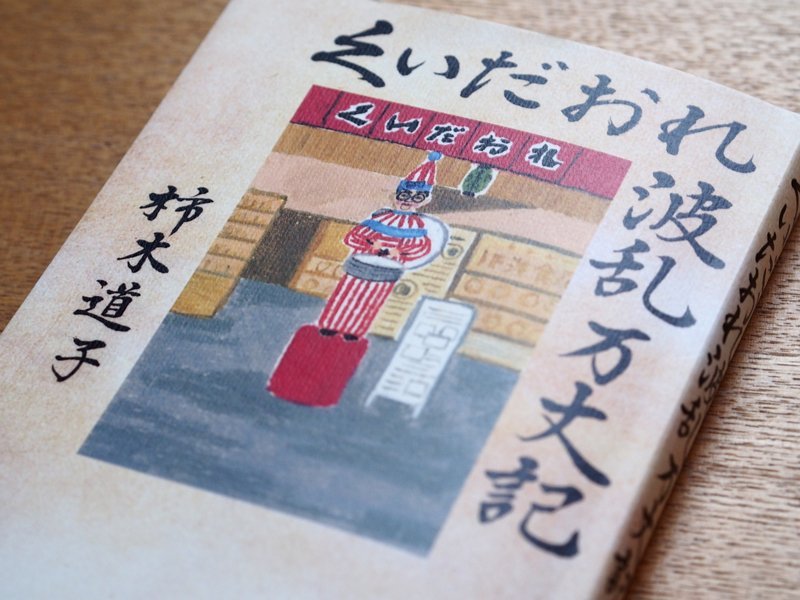 くいだおれ
波乱万丈記
くいだおれ
柿木道子